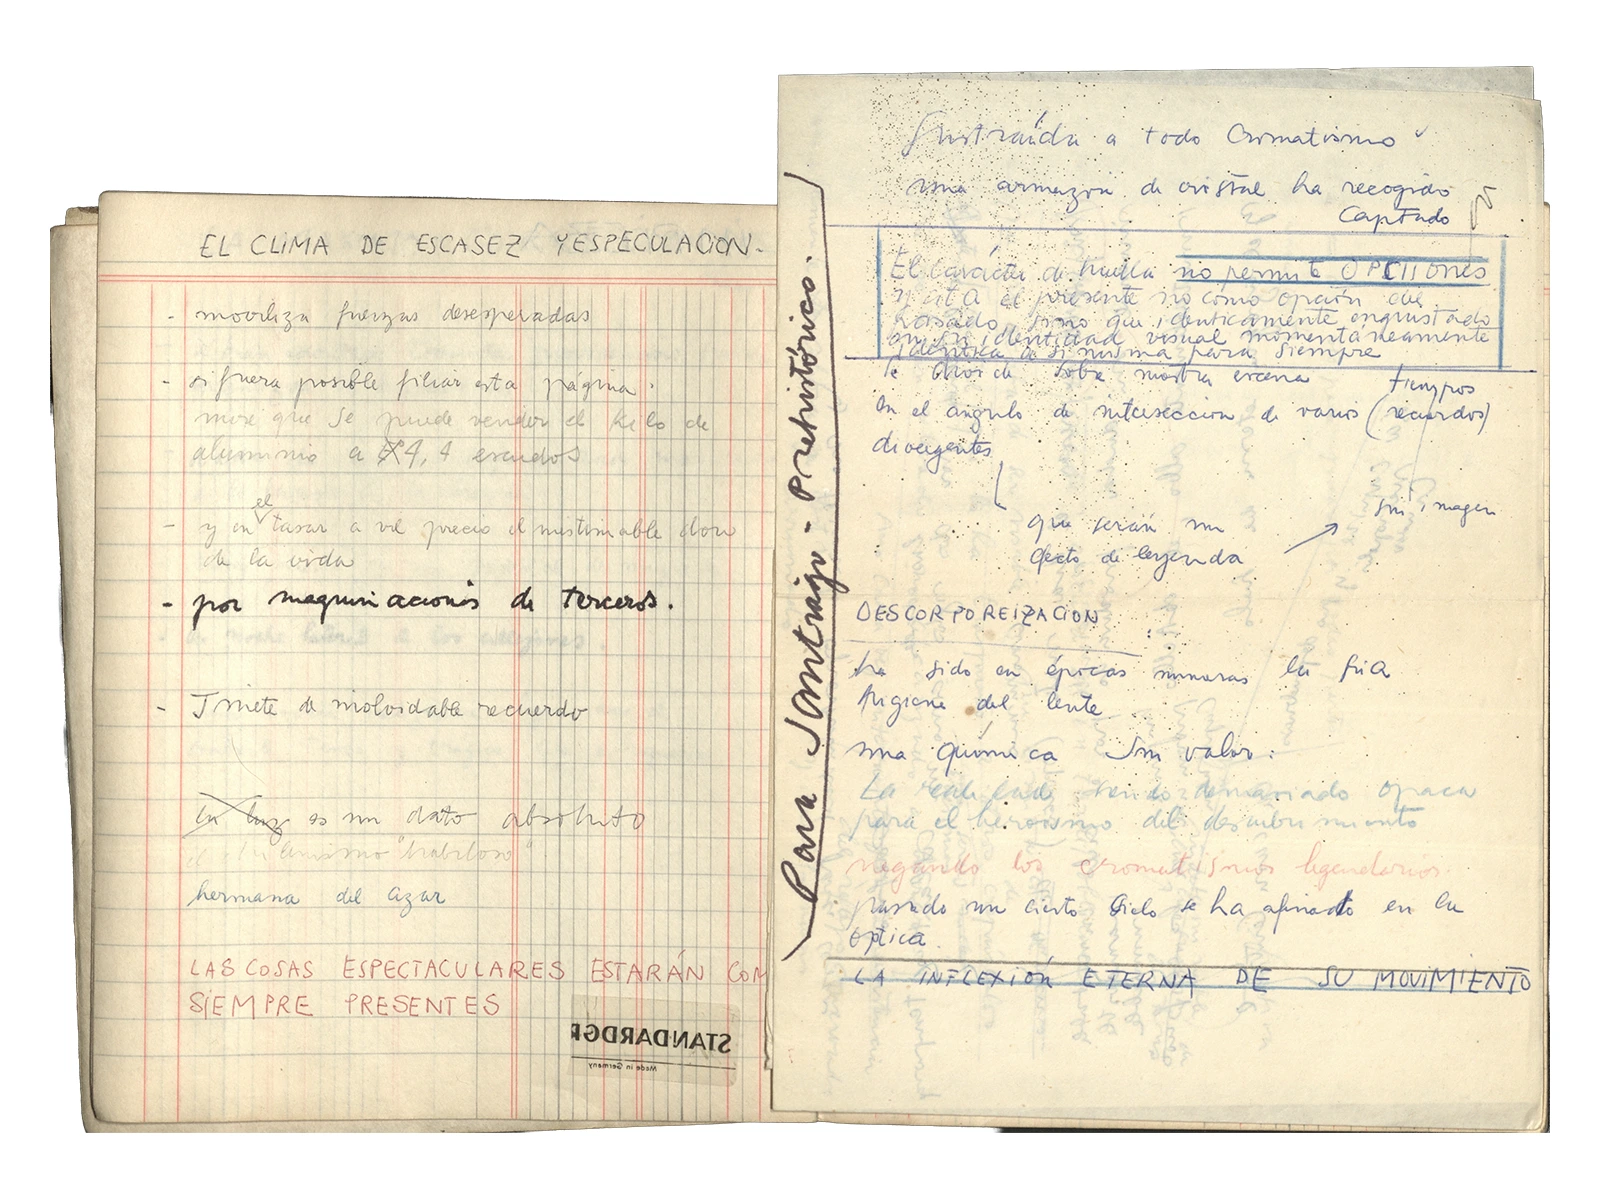 EL CLIMA DE ESCASEZ Y ESPECULACION.
- moviliza fuerzas desesperadas
- si fuera posible filiar esta página.
que se puede vender el kilo de
aluminio a 4,4 escudos
- y en el tasar a vil precio el inestimable don
de la vida
- por maquinaciones de terceros.
- Jinete de inolvidable recuerdo
La luz es un dato absoluto
el
hermana del azar
LAS COSAS ESPECTACULARES ESTARÁN COM
SIEMPRE PRESENTES
STANDARDGR
Made in Germany
Para Santiago - Prehistórico.
Sustraída a todo Cromatismo
una armazón de cristal ha recogido
Captado
El carácter de huella no permite OPCIIONES
y cita el presente no como opción del
pasado, sino que identicamente incrustado
en su identidad visual momentáneamente
identica a si misma para siempre
sobre nuestra escena
tiempos
en el ángulo de intersección de varios (recuerdos)
divergentes
sin imagen
que serán un
efecto de leyenda
DESCORPOREIZACION
ha sido en épocas mineras la fria
higiene del lente
una química sin valor:
La realidad siendo demasiado opaca
para el heroísmo del descubrimiento
negando los cromatismos legendarios.
pasado un cierto siclo se ha afinado en la
óptica.
LA INFLEXIÓN ETERNA DE SU MOVIMIENTO